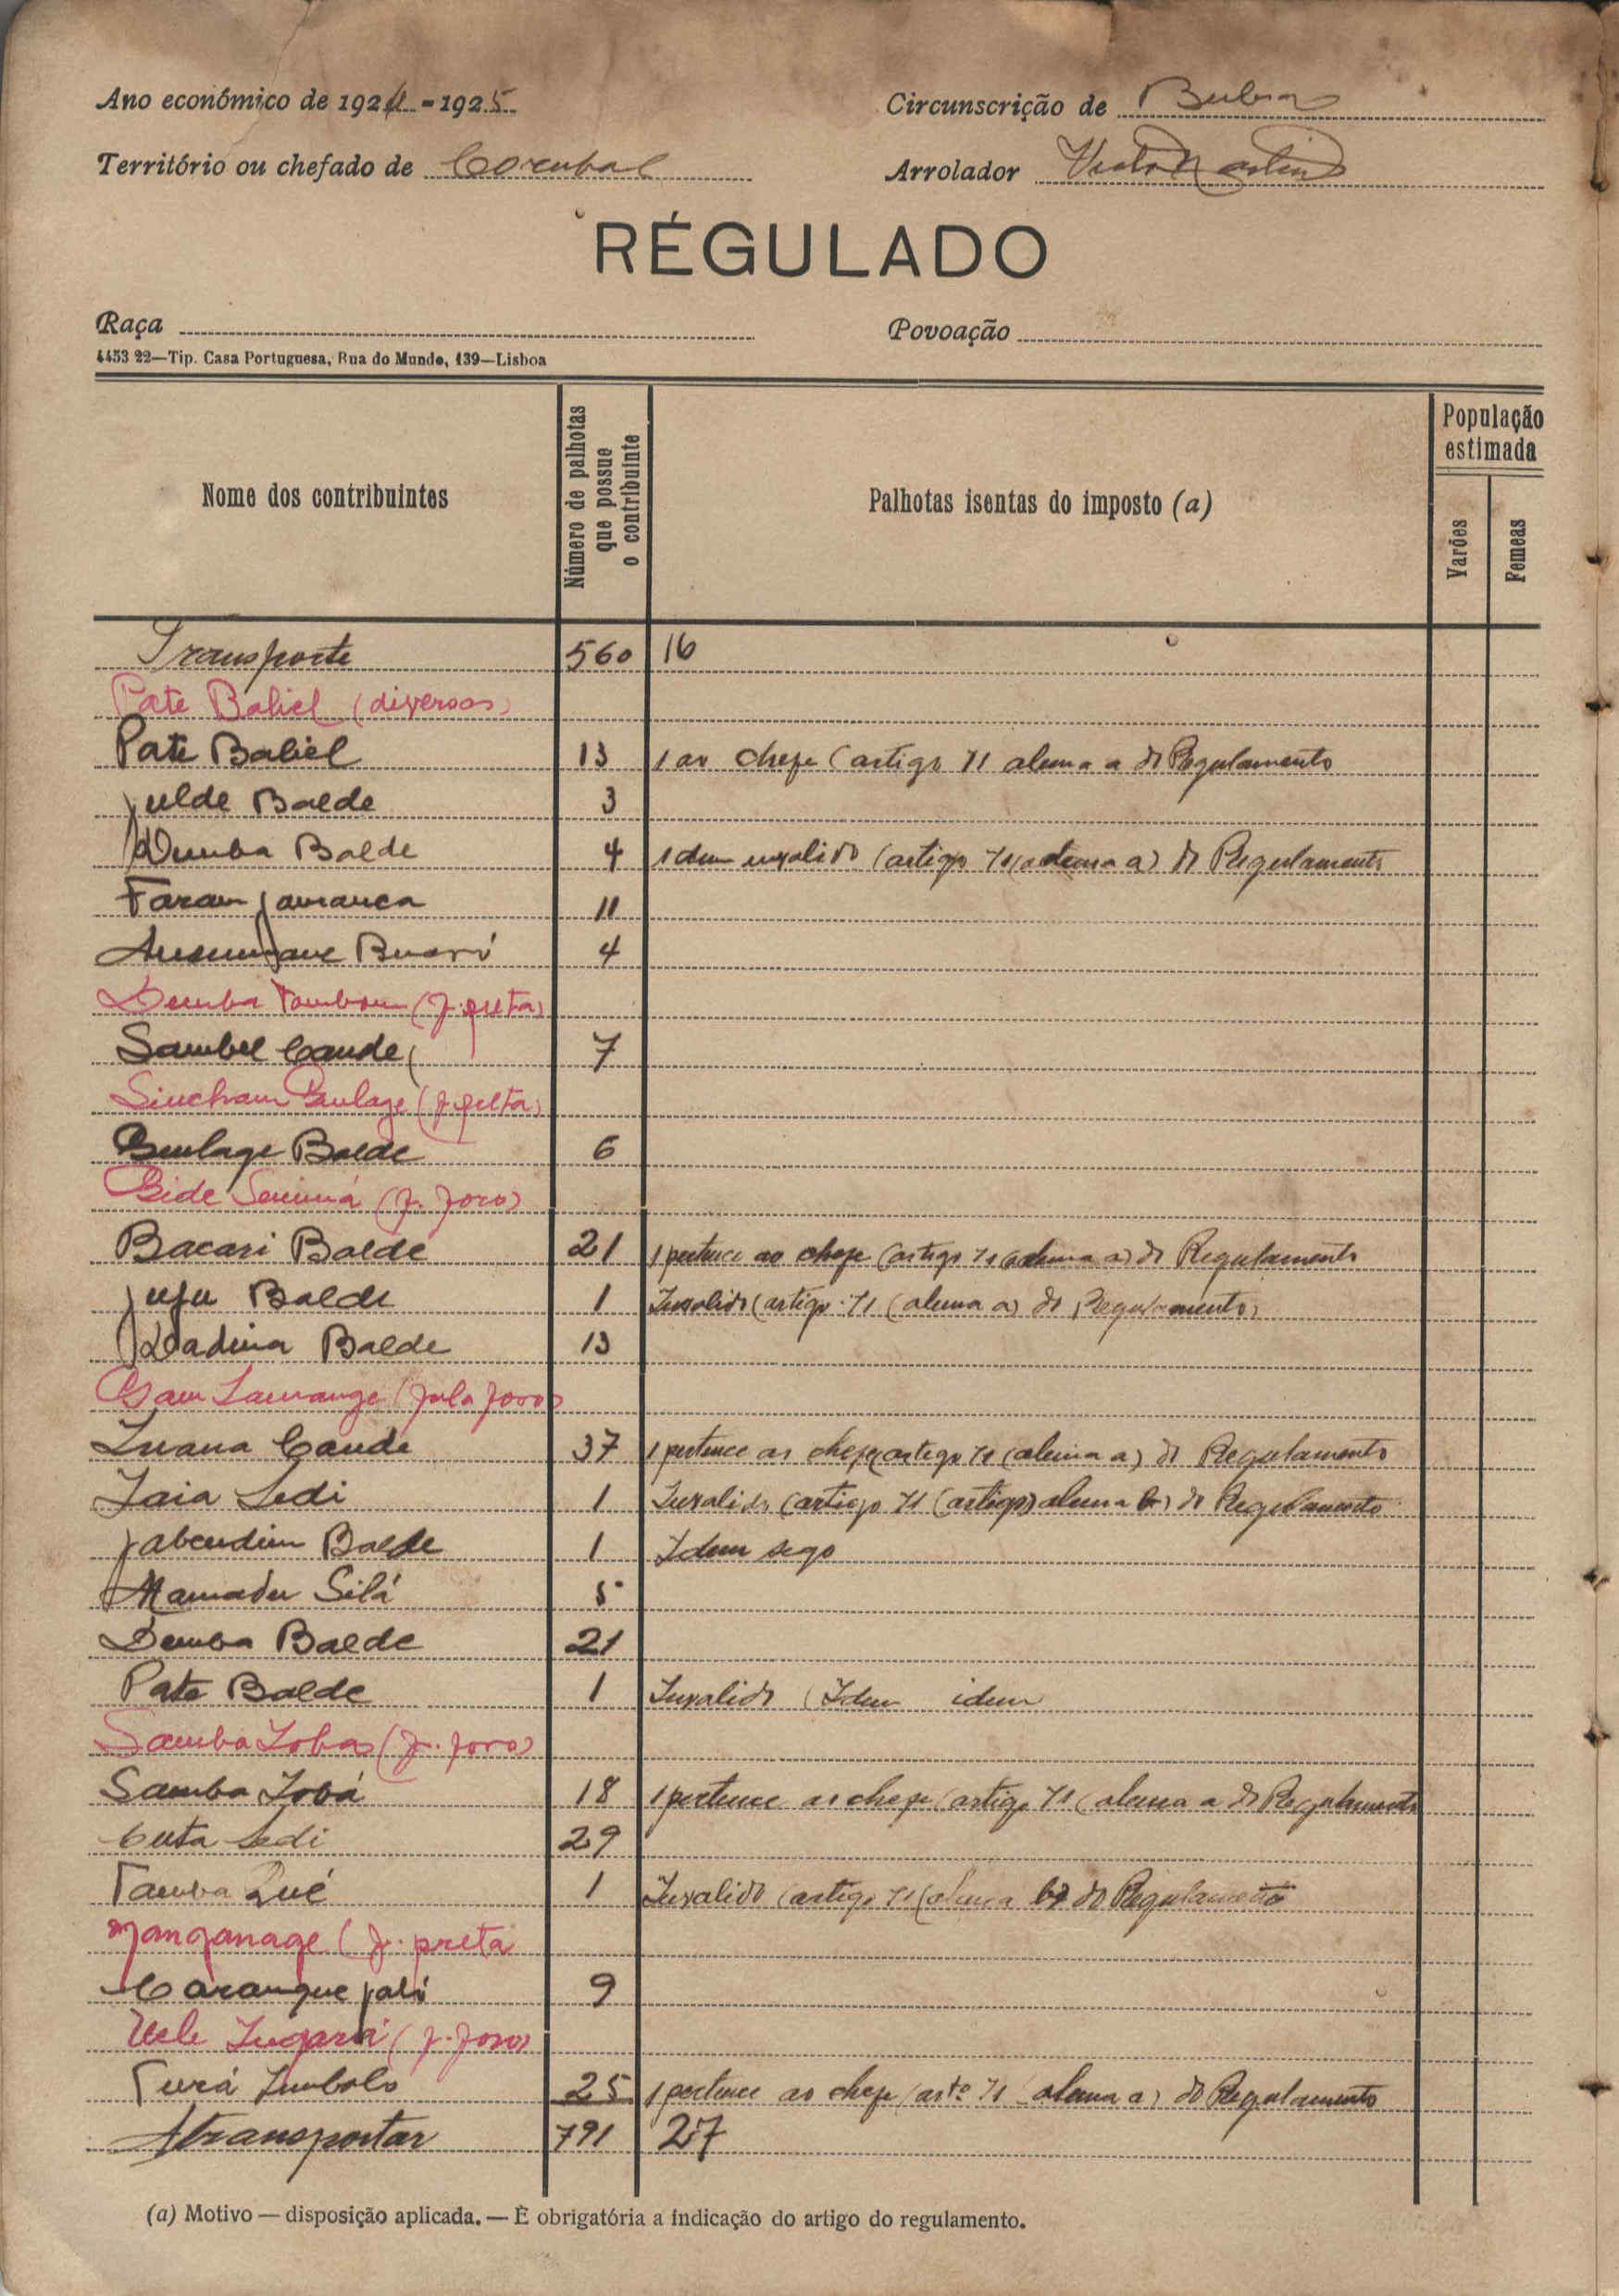 Ano económico de 1924 - 1925
Circunscrição de Buba
Território ou chefado de Corubal
Arrolador Martins
RÉGULADO
Raça
Povoação
4453 22—Tip. Casa Portuguesa, Rua do Mundo, 139—Lisboa
Nome dos contribuintes
Número de palhotas que possue o contribuinte
Palhotas isentas do imposto (a)
População estimada
Varões
Femeas
Transporte 560 16
Pate Baliel (diversos)
Pate Baliel 13 1 ao chefe (artigo 71 alinea a do Regulamento
Julde Balde 3
Demba Balde 4 1 dum invalido (artigo 71 (alinea a) do Regulamento
Faram Jamanca 11
Buaró 4
Demba (f. preta)
Sambel Cande 7
Sincham Bulage (f. preta)
Bulage Balde 6
Bide (f. foro)
Bacari Balde 21 1 pertence ao chefe (artigo 71 (alinea a) do Regulamento
Juju Balde 1 Invalido (artigo 71 (alinea a) do Regulamento)
Balde 13
Lamange (fula foro)
Cande 37 1 pertence ao chefe (artigo 71 (alinea a) do Regulamento
Iaia Sedi 1 Invalido (artigo 71 (artigo) alinea b) do Regulamento
Balde 1 Idem sego
Mamadu Silá 5
Demba Balde 21
Pate Balde 1 Invalido (Idem idem
Samba (f. foro)
Samba 18 1 pertence ao chefe (artigo 71 (alinea a do Regulamento
Cuta Sedi 29
Tamba 1 Invalido (artigo 71 (alinea b) do Regulamento
Manganage (f. preta
Carangue Jaló 9
(f. foro)
Turá 25 1 pertence ao chefe (artº 71 alinea a) do Regulamento
Atransportar 791 27
(a) Motivo — disposição aplicada. — É obrigatória a indicação do artigo do regulamento.